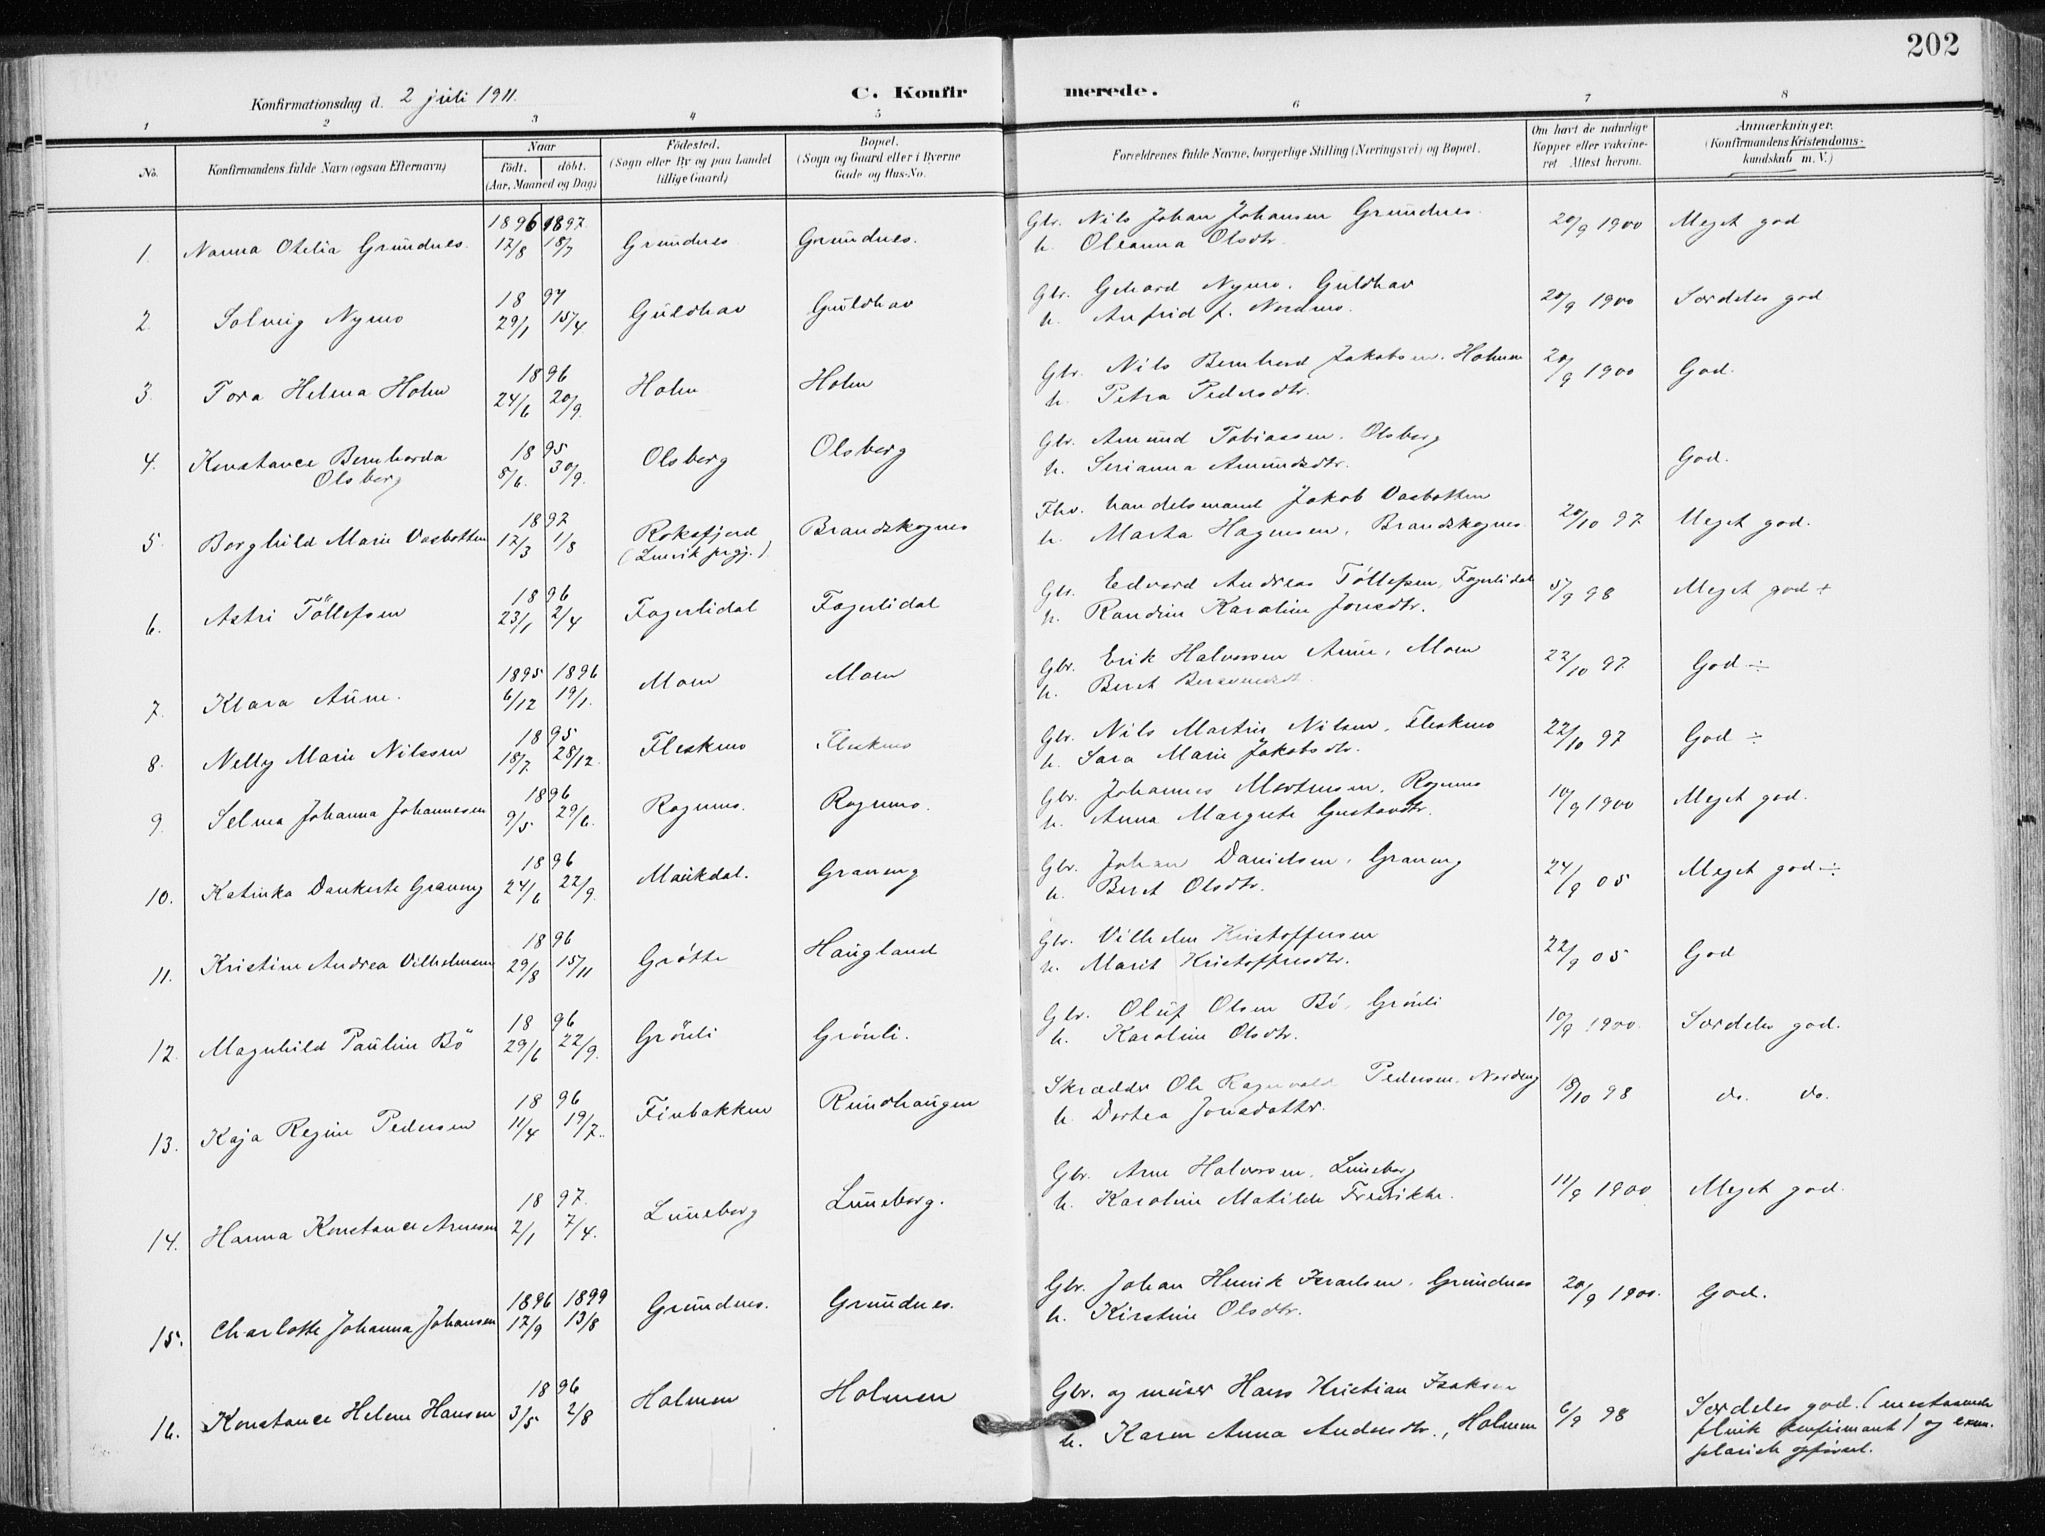 202
Konfirmationsdag d. 2 juli 1911.
C. Konfirmerede.
1 2 3 4 5 6 7 8
No. Konfirmandens fulde Navn (ogsaa Efternavn)
Naar
Født. døbt.
(Aar, Maaned og Dag)
Fødested.
(Sogn eller By og paa Landet
tillige Gaard)
Bopæl.
(Sogn og Gaard eller i Byerne
Gade og Hus-No.
Forældrenes fulde Navne, borgerlige Stilling (Næringsvei) og Bopæl.
Om havt de naturlige
Kopper eller vakcineret
Attest herom.
Anmærkninger.
(Konfirmandens Kristendomskundskab
m. V.)
1896 1897. Gbr. Nils Johan Johansen Grundnes.
1. Nanna Otelia Grundnes. 17/8 18/7 Grundnes Grundnes. h. Oleanna Olsdtr. 20/9 1900 Meget god
18 97 Gbr. Gehard Nymo, Guldhav
2. Solveig Nymo 29/1 15/4 Guldhav Guldhav h. Anfrid f. Nordmo. 20/9 1900 Særdeles god
18 96 Gbr. Nils Bernhard Jakobsen, Holmen
3. Tora Helena Holm 24/6 20/9. Holm Holm h. Petra Pedersdtr. 20/9 1900 God.
18 95 Gbr. Amund Tobiassen, Olsberg
4. Konstance Bernharda 8/6. 30/9. Olsberg Olsberg h. Serianna Amundsdtr. God.
Olsberg
18 97 Fhv. handelsmand Jakob Vasbotten
5. Borghild Marie Vasbotten 17/3 1/8 Roksfjord Brandskognes h. Marta Hagensen, Brandskognes. 20/10 97 Meget god.
(Lenvik prgj.)
18 96 Gbr. Edvard Andreas Töllefsen, Fagerlidal
6. Astri Töllefsen 23/1 2/4 Fagerlidal Fagerlidal h. Randine Karoline Jonsdtr. 5/9 98 Meget god +
1895 1896 Gbr. Erik Halvorsen Aune, Moen
7. Klara Aune. 6/12 19/1. Moen Moen h. Beret 22/10 97 God ÷
18 95 Gbr. Nils Martin Nilsen, Fleskmo
8. Nelly Marie Nilssen 18/7. 28/12. Fleskmo Fleskmo h. Sara Marie Jakobsdtr. 22/10 97 God ÷
1896 Gbr. Johannes Mortensen, Rognmo
9. Selma Johanna Johannessen 9/5 29/6. Rognmo. Rognmo. h. Anna Margrete Gustavdtr. 10/9 1900 Meget god.
18 96 Gbr. Johan Danielsen, Graneng
10. Katinka Dankerte Graneng 24/6 22/9. Maukdal. Graneng h. Beret Olsdtr. 24/9 05 Meget god ÷
18 96 Gbr. Vilhelm Kristoffersen
11. Kristine Andrea Vilhelmsen 29/8 15/11 Grötte Haugland h. Marit Kristoffersdtr. 22/9 05 God
18 96 Gbr. Oluf Olsen Bö, Grönli
12. Magnhild Pauline Bö 29/6 22/9. Grönli Grönli. h. Karoline Olsdtr. 10/9 1900. Særdeles god.
18 96 Skrædder Ole Ragnvald Pedersen, Nordeng
13. Kaja Regine Pedersen 11/4 19/7. Finbakken Rundhaugen h. Dortea Jonsdatter. 18/10 98 do. do.
18 97. Gbr. Arne Halvorsen, Luneborg
14. Hanna Konstance Arnesen 2/1 7/4. Luneborg Luneborg. h. Karoline Matilde Fredrikke. 11/9 1900 Meget god.
1896 1899 Gbr. Johan Henrik Israelsen, Grundnes
15. Charlotte Johanna Johansen 17/9 13/8 Grundnes. Grundnes. h. Kirstine Olsdtr. 20/9 1900. God.
18 96 Gbr. og murer Hans Kristian Isaksen
16. Konstance Helene Hansen 3/5 2/8 Holmen Holmen h. Karen Anna Andersdtr., Holmen 6/9 98 Særdeles god. (enestaaende
flink konfirmant) og exemplarisk
opførsel.